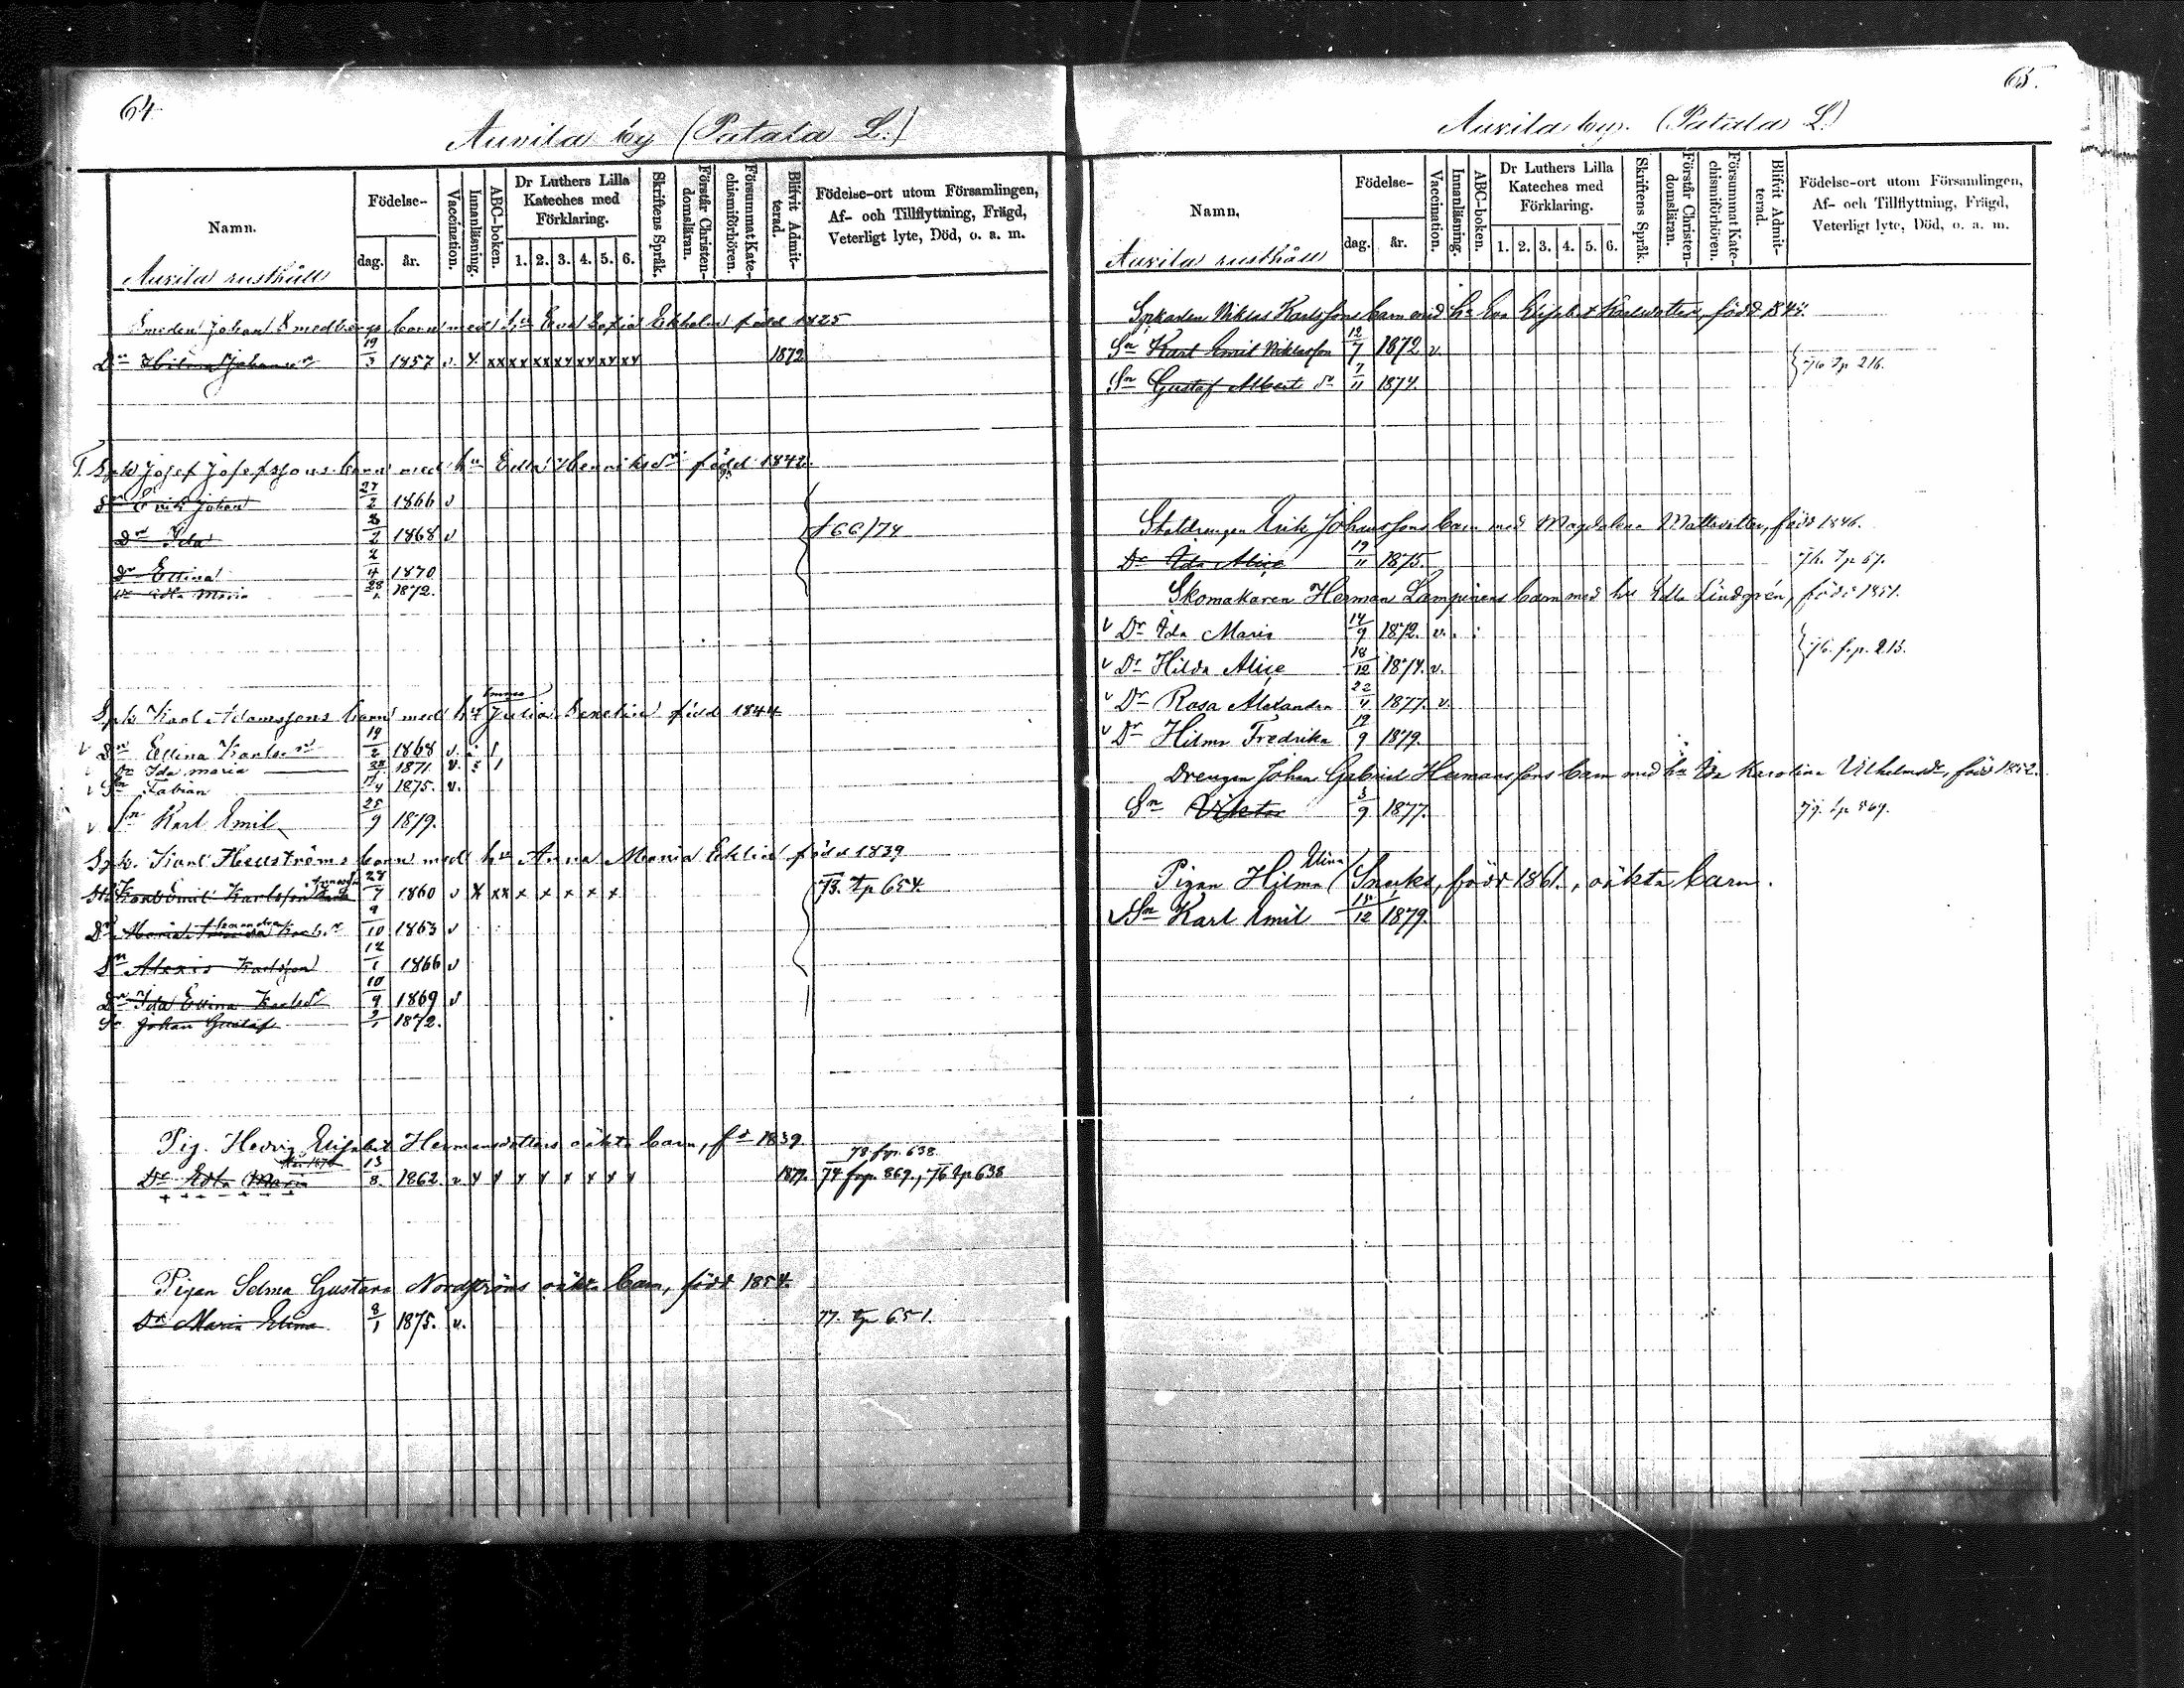 64.
Auvila by (Patala L.)
Namn.
Födelse-
dag. år.
Vaccination.
Innanläsning.
ABC-boken.
Dr Luthers Lilla Kateches med Förklaring.
1. 2. 3. 4. 5. 6.
Skriftens Språk.
Förstår Christendomsläran.
Försummat Katechismiförhören.
Blifvit Admitterad.
Födelse-ort utom Församlingen, Af- och Tillflyttning, Frägd, Veterligt lyte, Död, o. a. m.
Auvila rusthåll
Smeden Johan Smedbergs barn med hu Eva Sofia Ekholm född 1825
Dr 19/3 1857 v. x xx xx xx xx xx xx xx 1872
T. Spk Josef Josefssons barn med hu Edla Henriksdr född 1842.
Sn Erik Johan 27/2 1866 v
Dr Ida 1868 v
f 66/74
Dr Ellina 2/4 1870
Dr Edla Maria 28/1 1872.
Spk Karl Adamssons barn med hu Emma Julia född 1844
v Dr Ellina Karlsdr 19/2 1868 v.
v Dr Ida Maria 1871. v.
v Sn Fabian 17/4 1875. v.
v Sn Karl Emil 25/9 1879.
Spk. Karl Hellströms barn med hu Anna Maria Eklin född 1839
Karl Emil Karlsson 28/7 1860 v x xx x x x x x
73. tp 654
Dr Maria 9/10 1863 v
Sn Alexis Karlsson 12/1 1866 v
Dr Ida Ellina Karlsdr 10/9 1869 v
Sn Johan Gustaf 3/1 1872.
Pig. Hedvig Elisabet Hermansdotters oäkta barn, fd 1839
78 fp. 638.
Dr Edla Maria 13/8. 1862. v x x x x x x x x 1877. 74 frp. 869., 76 tp 638
Pigan Selma Gustava Nordströms oäkta barn, född 1854.
Dr Maria Elina 8/1 1875. v. 77. tp 651.
65.
Auvila by. (Patala L.)
Namn.
Födelse-
dag. år.
Vaccination.
Innanläsning.
ABC-boken.
Dr Luthers Lilla Kateches med Förklaring.
1. 2. 3. 4. 5. 6.
Skriftens Språk.
Förstår Christendomsläran.
Försummat Katechismiförhören.
Blifvit Admitterad.
Födelse-ort utom Församlingen, Af- och Tillflyttning, Frägd, Veterligt lyte, Död, o. a. m.
Auvila rusthåll
Spkarlen Niklas Karlssons barn med hu Eva Elisabet Karlsdotter, född 1847.
Sn Karl Emil Niklasson 12/7 1872 v.
76 tp 216.
Sn Gustaf Albert dn 7/11 1874.
Stalldrengen Erik Johanssons barn med Magdalena Mattsdotter, född 1846.
Dr Ida Alice 19/11 1875. 76. tp 67.
Skomakaren Herman Lampinens barn med hu Edla Lindgrén, född 1851.
v Dr Ida Maria 14/9 1872. v.
v Dr Hilda Alice 18/12 1874. v.
76. fp. 213.
v Dr Rosa Alexandra 22/4 1877. v.
v Dr Hilma Fredrika 19/9 1879.
Drengen Johan Gabriel Hermanssons barn med hu Ida Karolina Vilhelmsdr, född 1852.
Sn Viktor 3/9 1877. 79. tp 869.
Pigan Hilma Elina Snecks, född 1861., oäkta barn.
v Sn Karl Emil 15/12 1879.